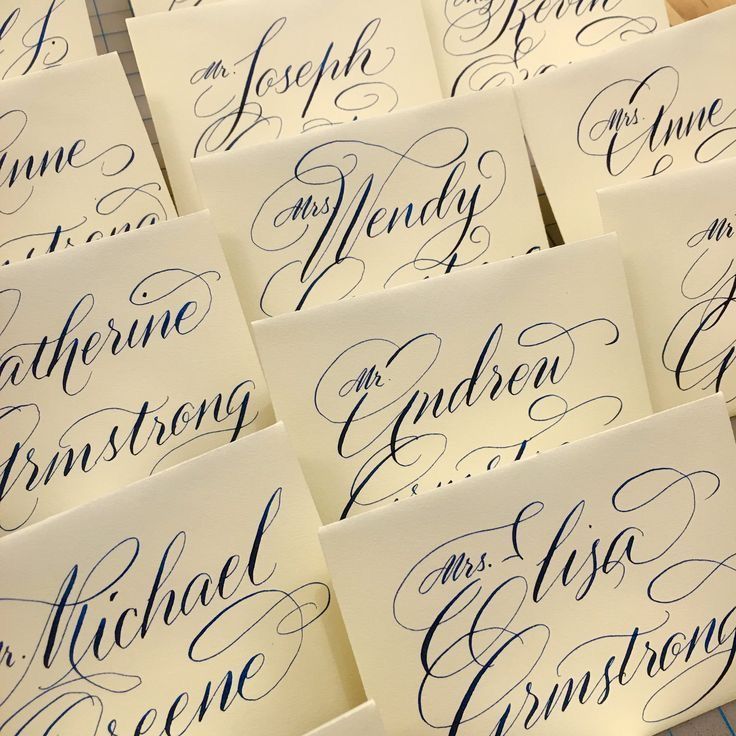 Mr. Joseph
Kevin
Mrs. Anne
Anne
Armstrong
Mrs. Wendy
Catherine
Armstrong
Mr. Andrew
Mr. Michael
Greene
Mrs. Elisa
Armstrong